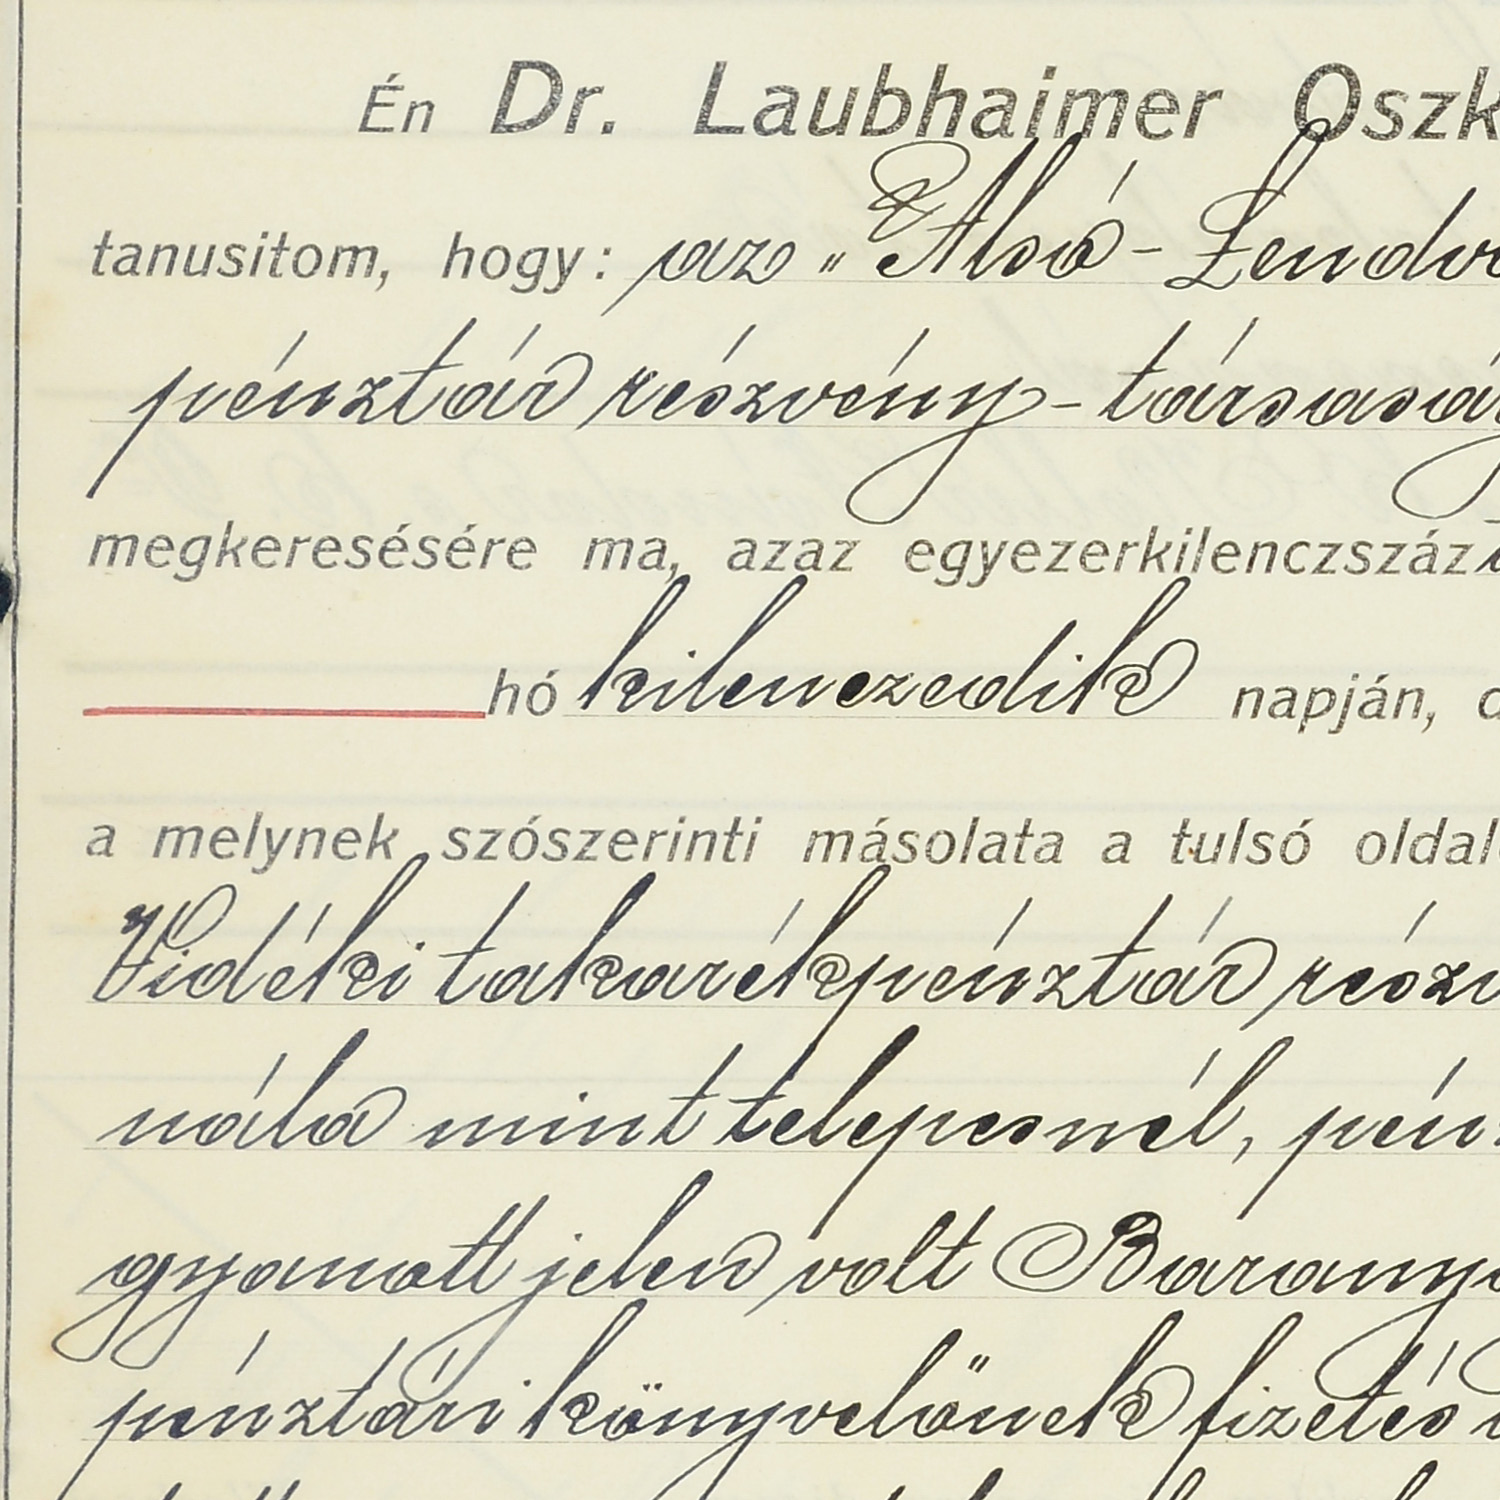 Én Dr. Laubhaimer Oszk
tanusitom, hogy: az „Alsó-Lendva
pénztár részvény-társaság
megkeresésére ma, azaz egyezerkilenczszáz
hó kilenczedik napján, d
a melynek szószerinti másolata a tulsó oldal
Vidéki takarékpénztár részv
nála mint telepesnél, pén
gyanatt jelen volt Baranya
pénztári könyvelőnek fizetés